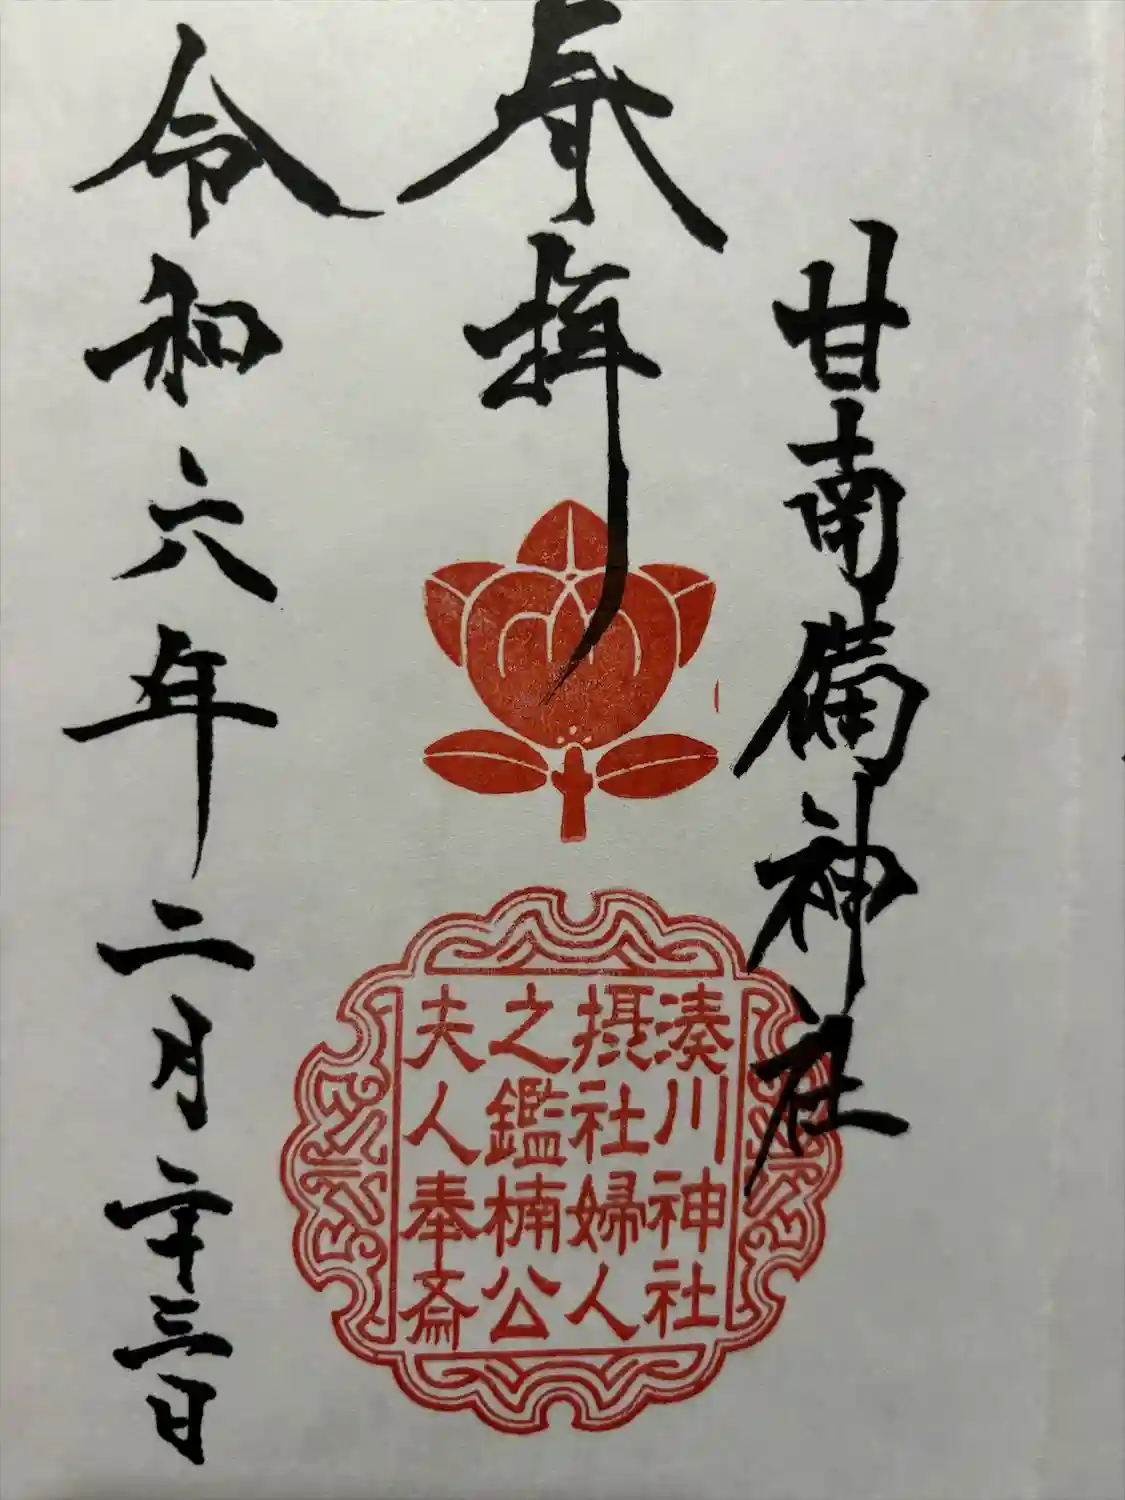 甘南備神社
奉拝
令和六年二月二十三日
湊川神社
摂社婦人
之鑑楠公
夫人奉斎